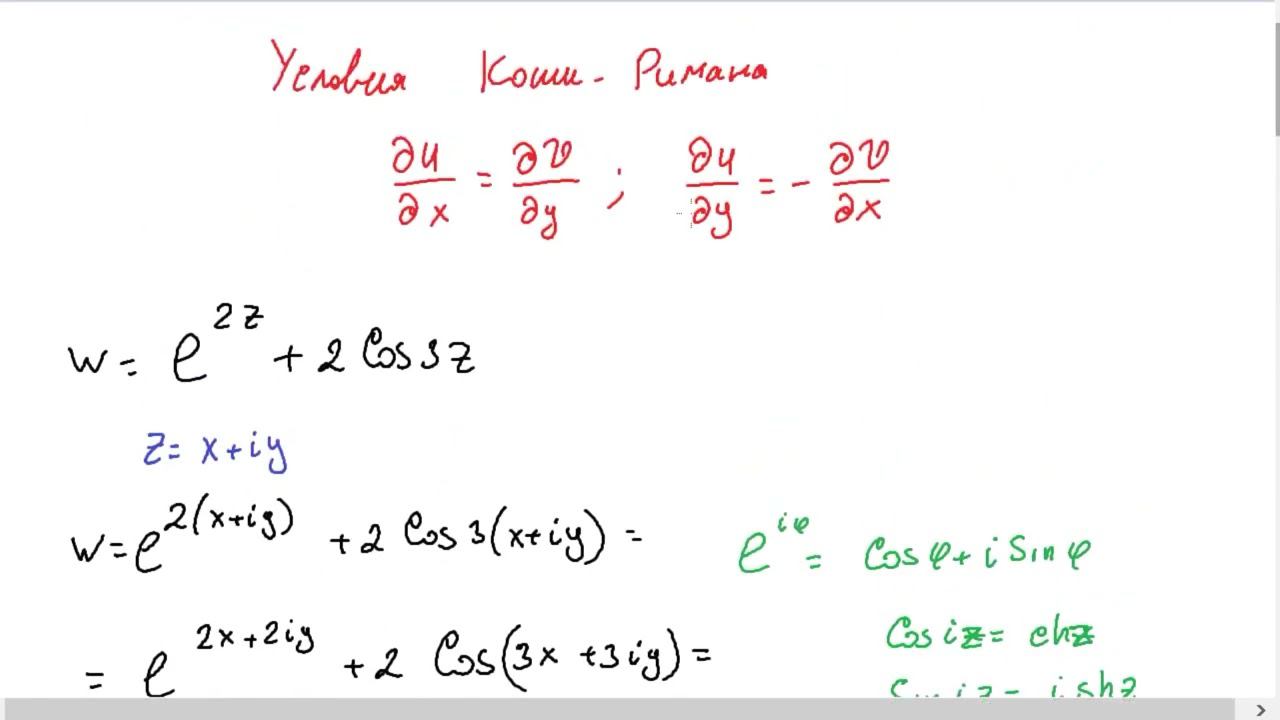 Условия Коши - Римана
∂u/∂x = ∂v/∂y ; ∂u/∂y = - ∂v/∂x
w = e^{2z} + 2 Cos 3z
z = x + iy
w = e^{2(x+iy)} + 2 Cos 3(x+iy) =
e^{iφ} = Cos φ + i Sin φ
Cos iz = chz
= e^{2x+2iy} + 2 Cos(3x + 3iy) =
Sin iz = i shz